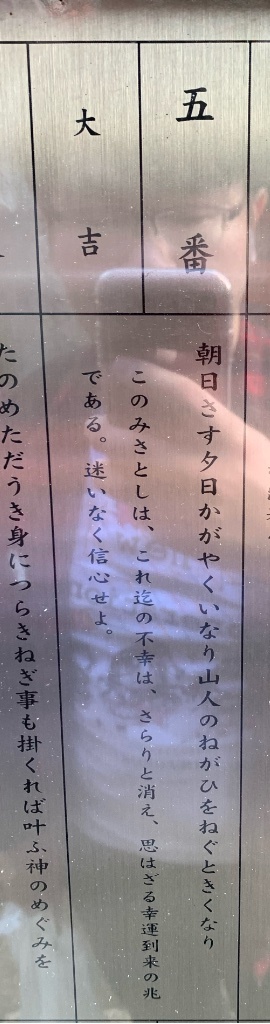 五番
大吉
朝日さす夕日かがやくいなり山人のねがひをねぐときくなり
このみさとしは、これ迄の不幸は、さらりと消え、思はざる幸運到来の兆
である。迷いなく信心せよ。
たのめただうき身につらきねぎ事も掛くれば叶ふ神のめぐみを